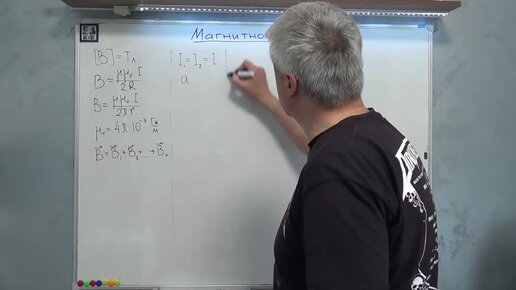 Магнитно
[B] = Тл
B = μμ₀ I / 2R
B = μμ₀ I / 2πr
μ₀ = 4π·10⁻⁷ Гн/м
B⃗ = B⃗₁ + B⃗₂ + ... + B⃗ₙ
I₁ = I₂ = I
a